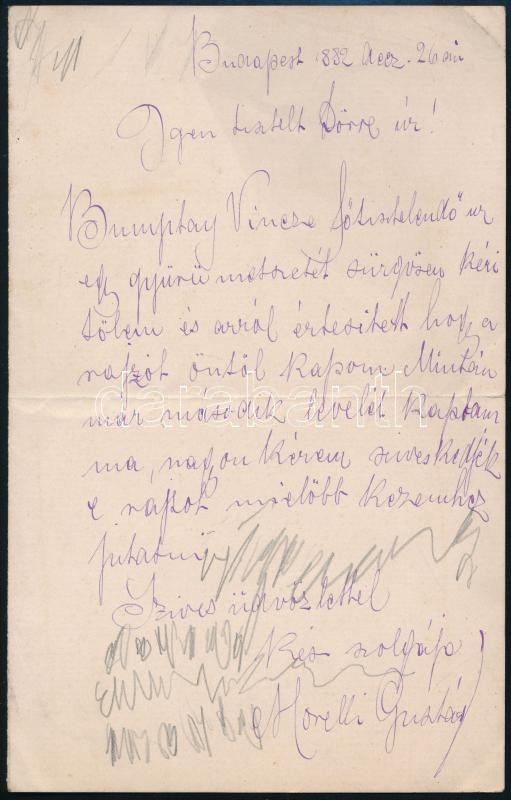 Budapest 1882 Decz. 26án
Igen tisztelt Dörre úr!
Bumptay Vincze főtisztelendő ur
egy gyürü metszetét sürgősen kéri
tőlem és arról értesitett hogy a
rajzot öntöl kapom. Miután
már második levelét kaptam
ma, nagyon kérem sziveskedjék
e rajzot mielőbb kezemhez
jutatni
Szives üdvözlettel
kész szolgája
Morelli Gusztáv
darabanth